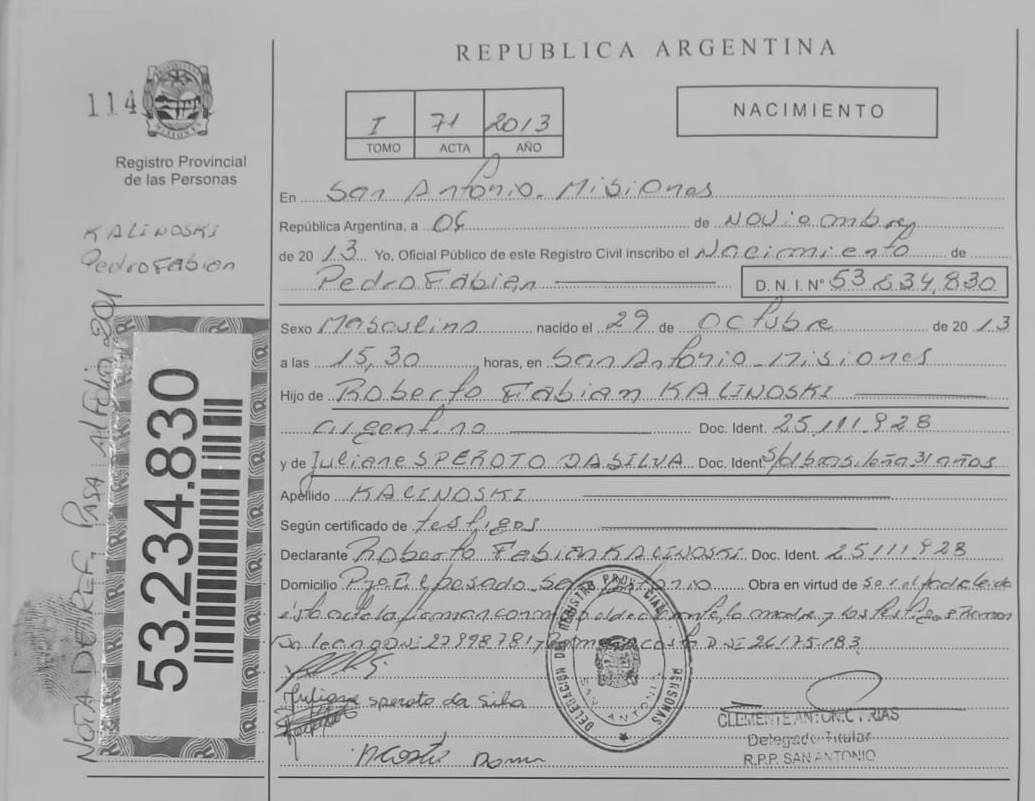 REPUBLICA ARGENTINA
114
Registro Provincial
de las Personas
KALINOSKI
Pedro Fabian
NOTA DE REF. PASA AL FOLIO 201
53.234.830
I 71 2013
TOMO ACTA AÑO
NACIMIENTO
En San Antonio - Misiones
República Argentina, a 06 de Noviembre
de 20 13 Yo, Oficial Público de este Registro Civil inscribo el Nacimiento de
Pedro Fabian D.N.I. Nº 53.234.830
Sexo Masculino nacido el 29 de Octubre de 20 13
a las 15,30 horas, en San Antonio - Misiones
Hijo de Roberto Fabian KALINOSKI
argentino Doc. Ident. 25.111.928
y de Juliane SPEROTO DASILVA Doc. Ident. S/d brasileña 31 años
Apellido KALINOSKI
Según certificado de testigos
Declarante Roberto Fabian KALINOSKI Doc. Ident. 25111928
Domicilio Obra en virtud de
la madre y los testigos
DNI 26.175.183
Juliane speroto da silva
DELEGACION DEL REGISTRO PROVINCIAL PERSONAS
SAN ANTONIO
CLEMENTE ANTONIO FRIAS
Delegado Titular
R.P.P. SAN ANTONIO